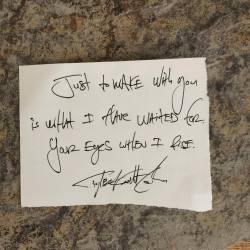 Just to wake with you
is what I have waited for,
your eyes when I rise.